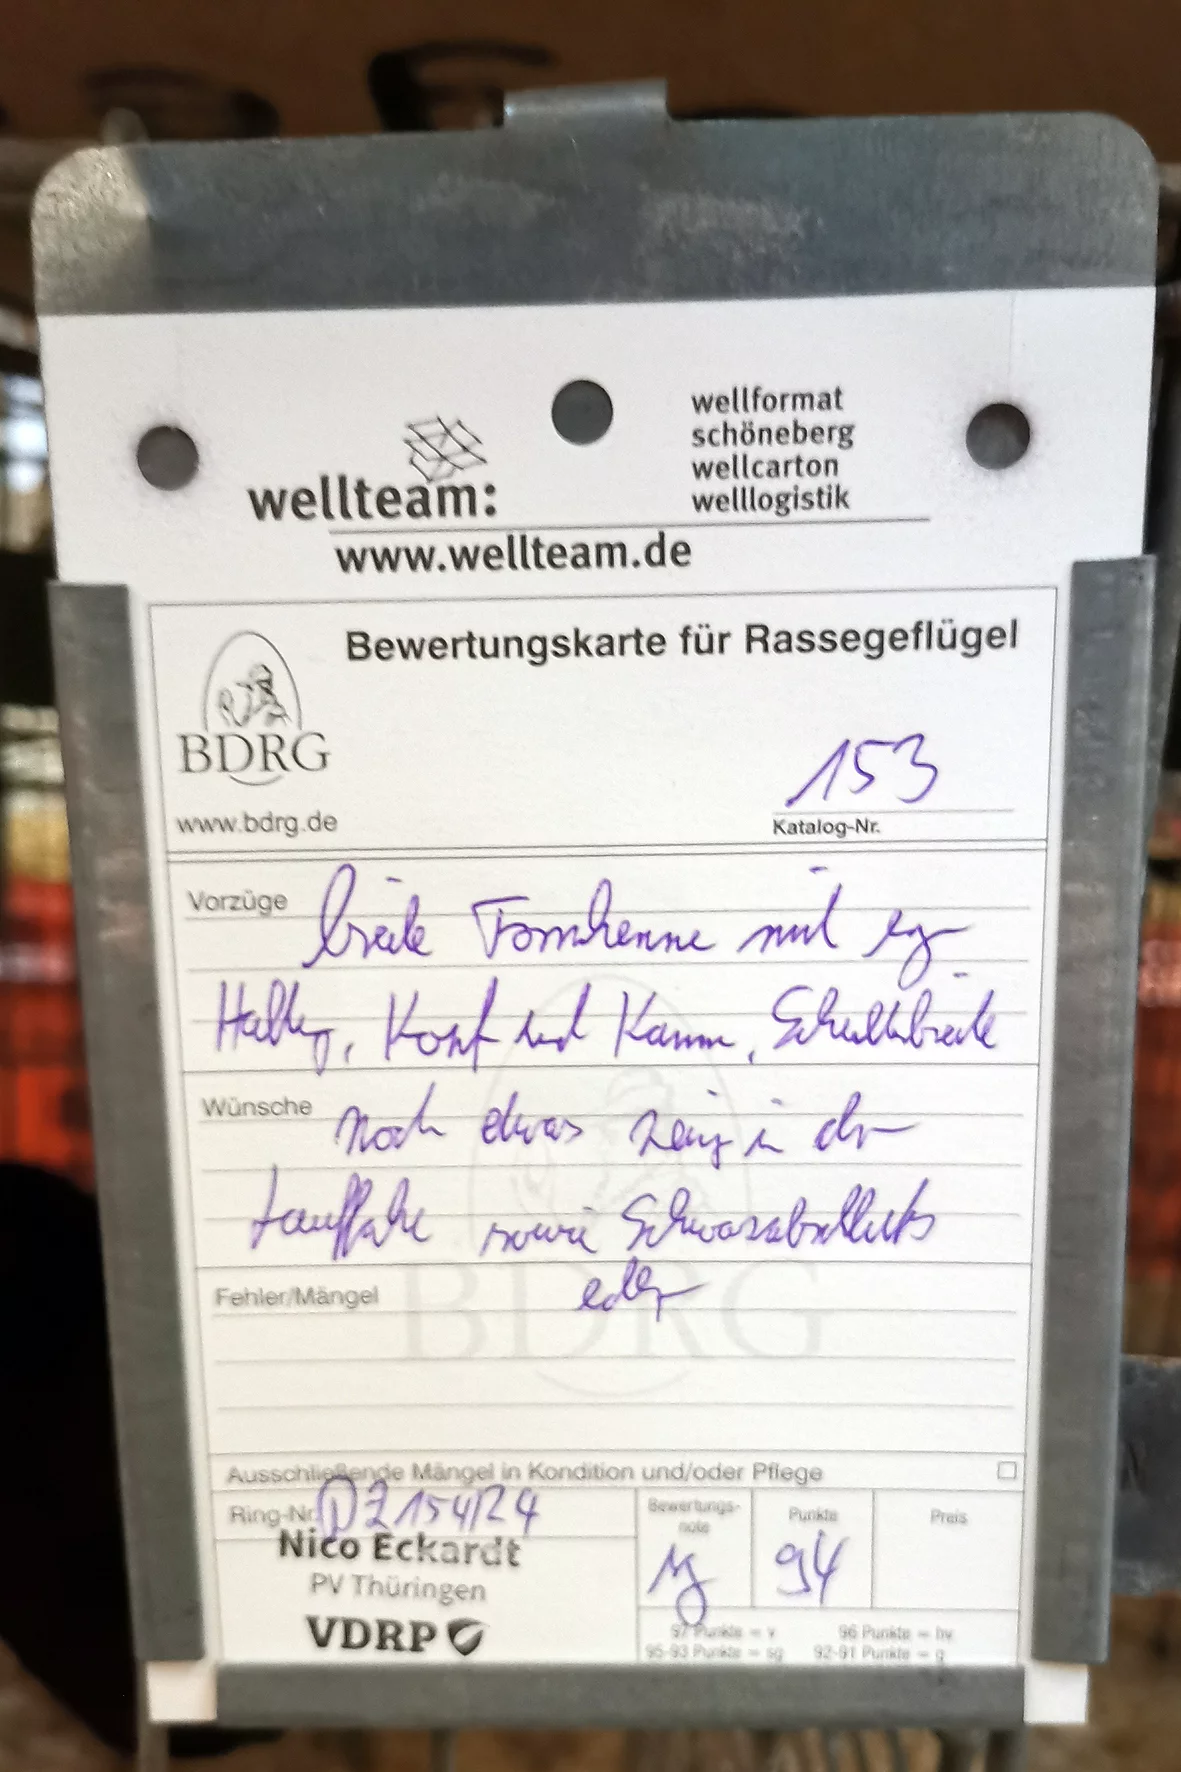 wellteam:
wellformat
schöneberg
wellcarton
welllogistik
www.wellteam.de
Bewertungskarte für Rassegeflügel
BDRG
www.bdrg.de
153
Katalog-Nr.
Vorzüge breite Formhenne mit
Haltg, Kopf und Kamm, Schulterbreite
Wünsche noch etwas in der
sowie
Fehler/Mängel
BDRG
Ausschließende Mängel in Kondition und/oder Pflege
Ring-Nr. D Z 154/24
Nico Eckardt
PV Thüringen
VDRP
Bewertungs-
note
sg
Punkte
94
Preis
97 Punkte = v 96 Punkte = hv
95-93 Punkte = sg 92-91 Punkte = g